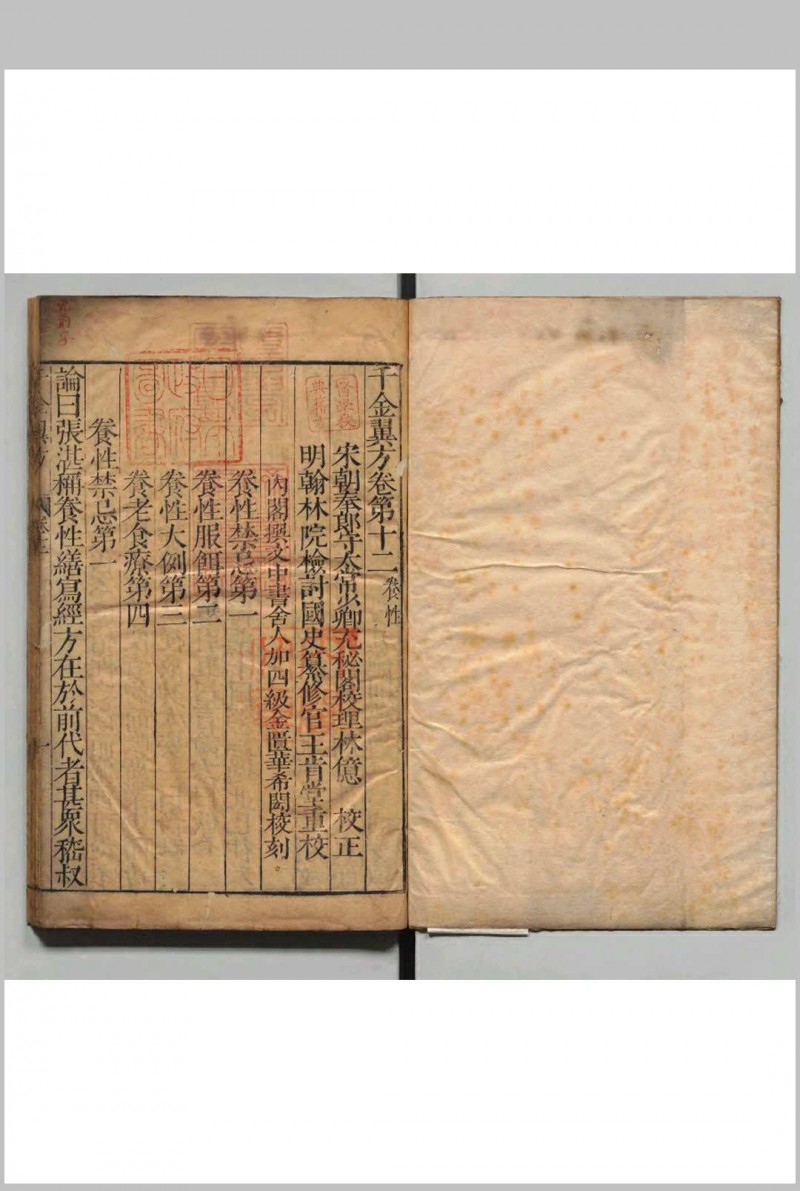 千金翼方卷第十二 養性
宋朝奉郎守太常少卿充秘閣校理林億 校正
明翰林院檢討國史纂修官王肯堂重校
內閣撰文中書舍人加四級金匱華希閎校刻
養性禁忌第一
養性服餌第二
養性大例第三
養老食療第四
養性禁忌第一
論曰張湛稱養性繕寫經方在於前代者甚衆嵇叔
千金翼方 卷十二 一